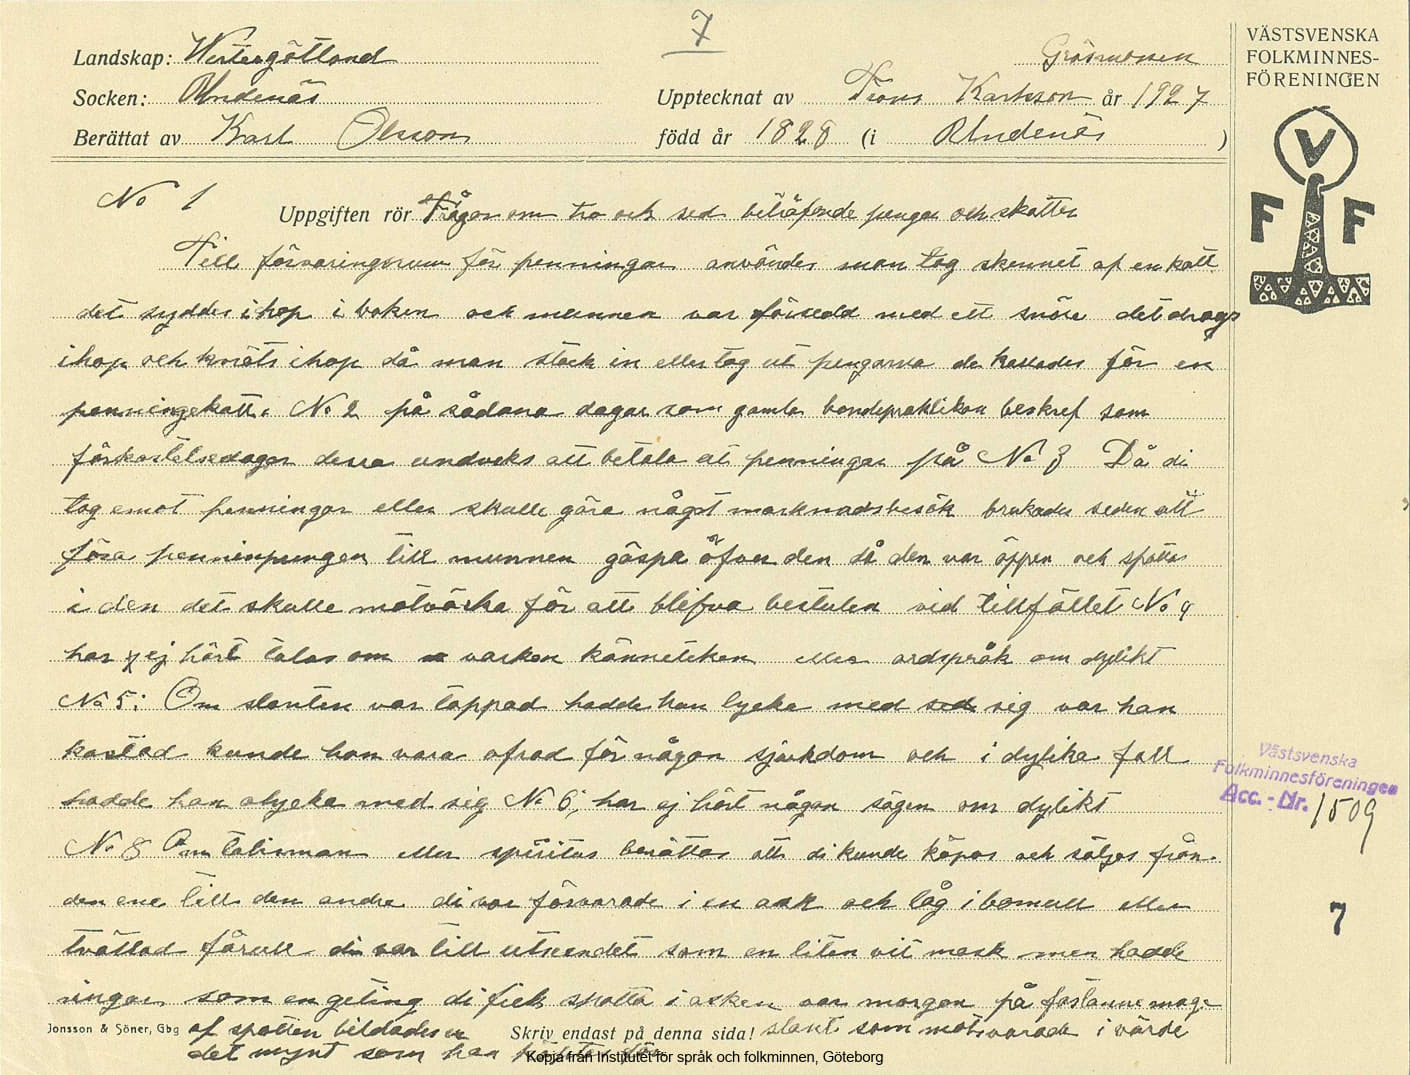 7
Landskap: Westergötland
Gräsmosen
Socken: Undenäs
Upptecknat av Frans Karlsson år 1927
Berättat av Karl Olsson
född år 1828 (i Undenäs )
VÄSTSVENSKA
FOLKMINNES-
FÖRENINGEN
V
F F
No 1
Uppgiften rör Frågor om tro och sed beträfende pengar och skatter
Till förvaringsrum för penningar användes man tog skennet af en katt
det syddes ihop i baken och munnen var försedd med ett snöre det drogs
ihop och knöts ihop då man stack in eller tog ut pengarna de kallades för en
penningekatt. No 2 på sådana dagar som gamla bondepraktikan beskref som
förkastelsedagar dessa undveks att betala ut penningar på No 3 Då di
tog emot penningar eller skulle göra något marknadsbesök brukades seden att
föra penninpungen till munnen gäspa öfver den då den var öppen och spotta
i den det skulle motvärka för att blifva bestulen vid tillfället No 4
har ej hört talas om varken känneteken eller ordspråk om dylikt
No 5: Om slanten var tappad hadde han lycka med sig var han
kastad kunde han vara ofrad för någon sjukdom och i dylika fall
hadde han olycka med sig No 6; har ej hört någon sägen om dylikt
No 8 Om talisman eller spiritus berättas att di kunde köpas och säljas från
den ene till den andre di var förvarade i en ask och låg i bomull eller
tvättad fårull di var till utseendet som en liten vit mask men hadde
ringar som en geting di fick spotta i asken var morgon på fastanne mage
af spotten bildades en slant som motsvarade i värde
det mynt som han köptes för
Jonsson & Söner, Gbg
Skriv endast på denna sida!
Kopia från Institutet för språk och folkminnen, Göteborg
Västsvenska
Folkminnesföreningen
Acc. - Nr. 1509
7